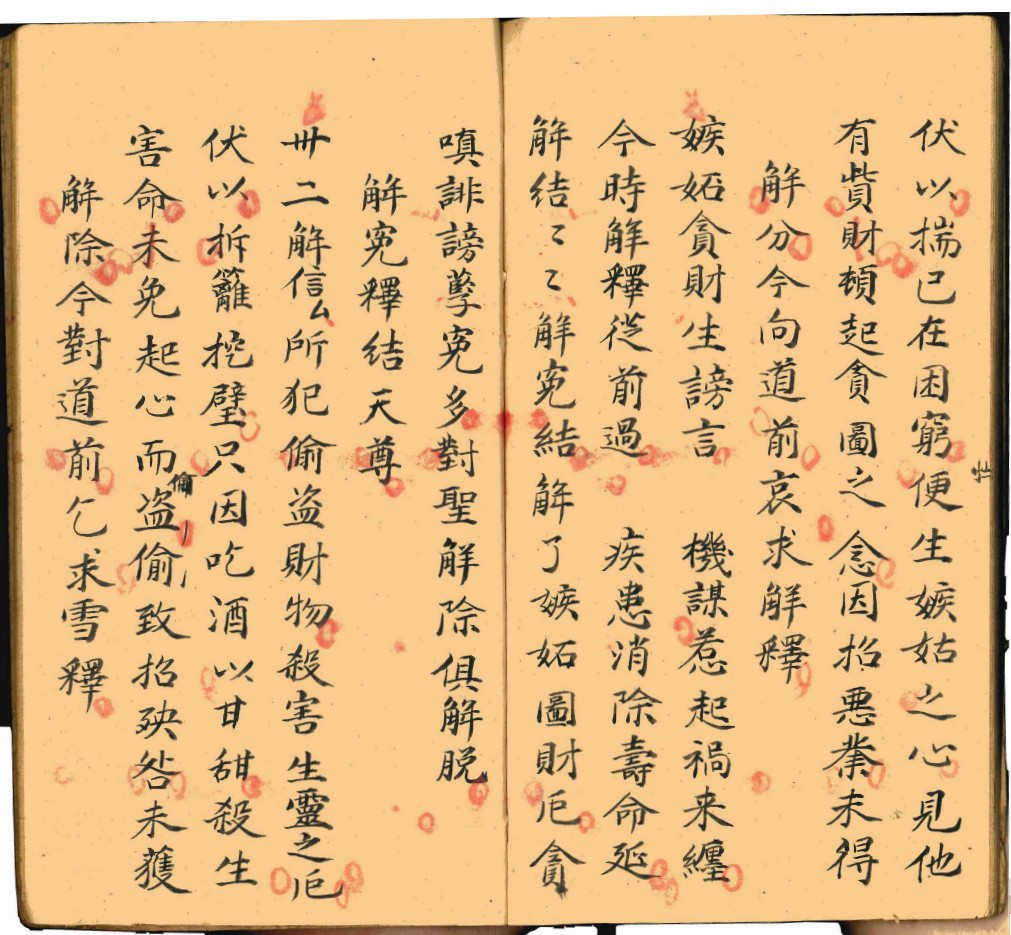 伏以揣己在困窮便生嫉姑之心見他
有貲財頓起貪圖之念因招悪業未得
解分今向道前哀求解釋
嫉妬貪財生謗言 機謀惹起禍来纏
今時解釋從前過 疾患消除壽命延
解結〻〻解寃結解了嫉妬圖財厄貪
嗔誹謗孽寃多對聖解除俱解脱
解寃釋結天尊
卅二解信厶所犯偷盗財物殺害生靈之厄
伏以拆籬挖壁只因吃酒以甘甜殺生
害命未免起心而偷盗偷致招殃咎未獲
解除今對道前乞求雪釋